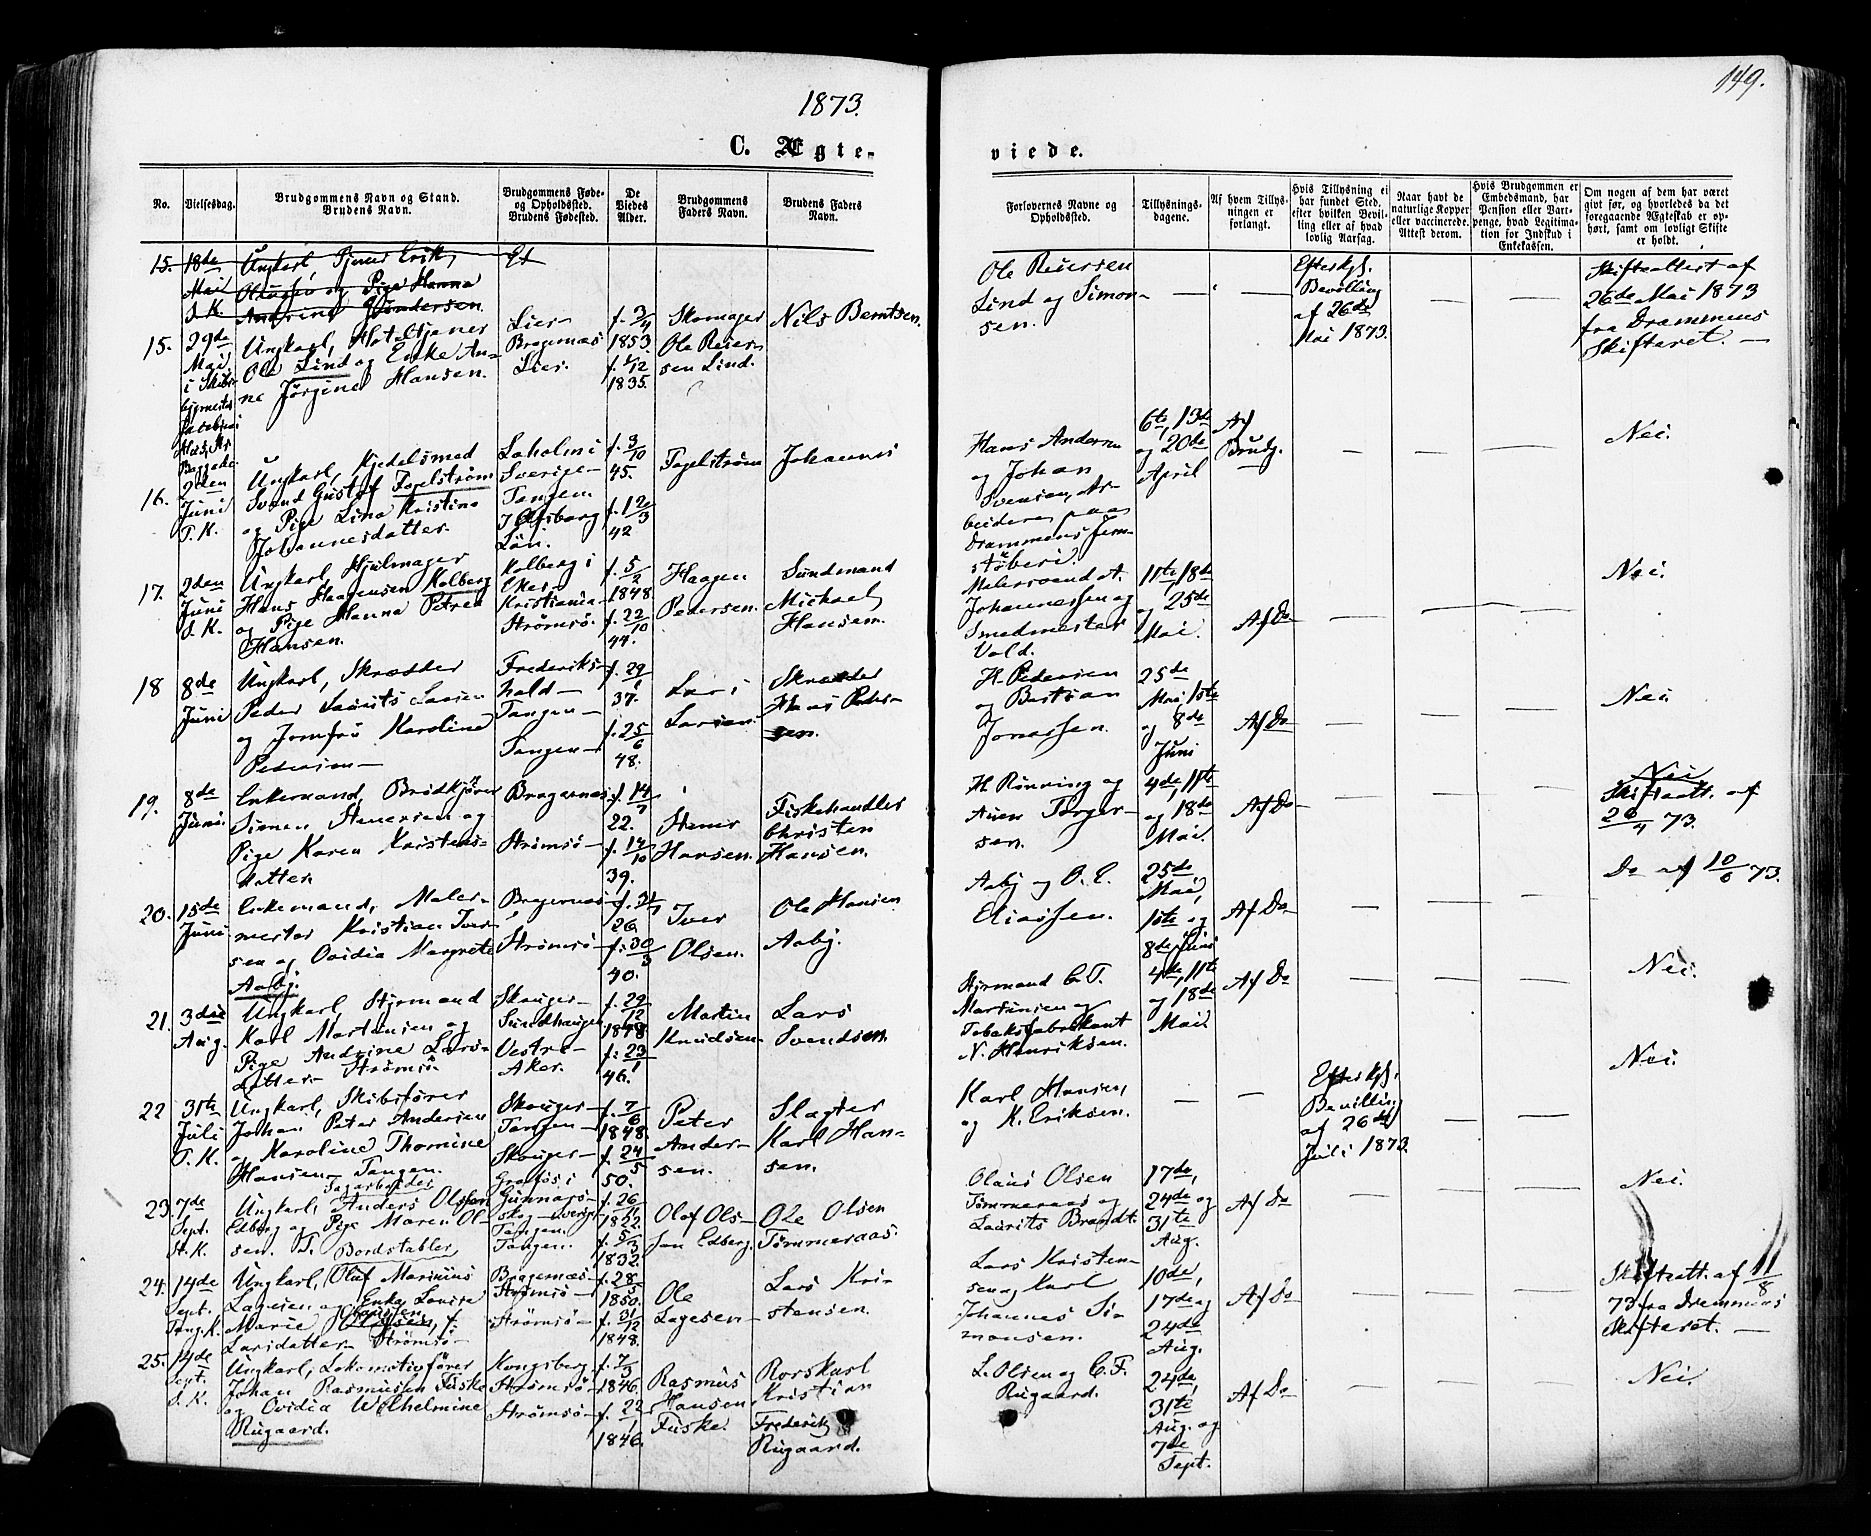 1873.
149.
C. Ægte-
viede.
No.
Vielsesdag.
Brudgommens Navn og Stand.
Brudens Navn.
Brudgommens Føde-
og Opholdssted.
Brudens Fødested.
De
Viedes
Alder.
Brudgommens
Faders Navn.
Brudens Faders
Navn.
Forlovernes Navne og
Opholdssted.
Tillysnings-
dagene.
Af hvem Tillys-
ningen er
forlangt.
Hvis Tillysning ei
har fundet Sted,
efter hvilken Bevil-
ling eller af hvad
lovlig Aarsag.
Naar havt de
naturlige Kopper
eller vaccinerede.
Attest derom.
Hvis Brudgommen er
Embedsmand, har
Pension eller Vart-
penge, hvad Legitima-
tion for Indskud i
Enkekassen.
Om nogen af dem har været
givt før, og hvorledes da det
foregaaende Ægteskab er op-
hørt, samt om lovligt Skifte
er holdt.
15. 18de
Mai
S. K.
Ungkarl, Tjener Erik
og Pige Hanna
Andrine Gundersen
15. 29de
Mai
i Skibs-
Ungkarl, Hoteltjener
Ole Lind og Enke An-
ne Jørgine Hansen.
Lier-
Bragernæs
Lier.
f. 3/4
1853.
f. 1/12
1835.
Skomager
Ole Reier-
sen Lind.
Nils Berntsen.
Ole Reiersen
Lind og Simon-
sen.
— —
Efter Kgl.
Bevilling
af 26de
Mai 1873.
— —
Skifteattest af
26de Mai 1873
fra Drammens
Skifteret. —
16.
2den
Juni
T. K.
Ungkarl, Kjedelsmed
Svend Gustaf Fogelstrøm
og Pige Lina Kristina
Johannesdatter.
Laholm i
Sverige-
Tangen.
Elfsborg
Län.
f. 3/10
45.
f. 12/3
42
Fogelstrøm
Johannes
Hans Andersen
og Johan
Svensen, Ar-
beidere paa
Drammens Jern-
støberi.
6te, 13de
og 20de
April
Af
Brudg.
— — —
Nei.
17.
2den
Juni
S. K.
Ungkarl, Hjulmager
Hans Haagensen Kolberg
og Pige Hanna Petrea
Hansen.
Kolberg i
Eker-
Kristiania-
Strømsø.
f. 5/2
1848
f. 22/10
44.
Haagen
Pedersen.
Sundmand
Michael
Hansen.
Malersvend A.
Johannessen og
Smedmester
Vold.
11te, 18de
og 25de
Mai.
Af Do
— — —
Nei.
18
8de
Juni
Ungkarl, Skrædder
Peder Laurits Larsen
og Jomfru Karoline
Pedersen—
Frederiks-
hald-
Tangen-
Tangen-
f. 29/1
37.
f. 25/6
48.
Lars
Larsen.
Skrædder
Hans Peder-
sen.
H. Pedersen
og Bastian
Jonassen.
25de
Mai, 1ste
og 8de
Juni
Af Do
— — —
Nei.
19.
8de
Juni.
Enkemand, Brødkjører
Simen Stenersen og
Pige Karen Kristens-
datter
Bragernæs-
Strømsø-
f. 14/7
22.
f. 14/10
39.
Stener
Hansen.
Fiskehandler
Christen
Hansen.
H. Rønning og
Aslen Torger-
sen.
4de, 11te
og 18de
Mai.
Af Do
— — —
Nei
Skifteatt. af
26/4 73.
20.
15de
Juni
Enkemand, Maler-
mester Kristian Iver-
sen og Ovidia Margrete
Aaby.
Bragernæs-
Strømsø-
f. 31/1
26.
f. 30/3
40.
Iver
Olsen.
Ole Hansen
Aaby.
Aaby og O. E.
Eliassen.
25de
Mai,
1ste og
8de Juni
Af Do
— — —
Do af 10/6 73.
21.
3die
Aug.
Ungkarl, Styrmand
Karl Martinsen og
Pige Andrine Lars-
datter- Strømsø
Skouger-
Sundhaugen
Vestre-
Aker.
f. 29/12
1848
f. 23/1
46.
Martin
Knudsen
Lars
Svendsen.
Styrmand C. T.
Martinsen og
Tobaksfabrikant
N. Henriksen.
4de, 11te
og 18de
Mai.
Af Do
— — —
Nei.
22
31te
Juli
T. K.
Ungkarl, Skibsfører
Johan Peter Andersen
og Karoline Thomine
Hansen- Tangen.
Skouger-
Tangen-
Skouger-
f. 7/6
1848.
f. 24/5
50.
Peter
Ander-
sen.
Slagter
Karl Han-
sen.
Karl Hansen,
og K. Eriksen.
— —
Efter Kgl.
Bevilling
af 26de
Juli 1873.
— —
Nei.
23.
7de
Sept.
St. K.
Ungkarl, Anders Olsson
Edberg og Pige Maren Ol-
sen. T.
Gunnars-
skog Sverige
Tangen.
Tangen.
f. 26/11
1852.
f. 5/3
1832.
Olof Ols-
son Edberg.
Ole Olsen
Tømmeraas.
Olaus Olsen
Tømmeraas og
Laurits Brandt.
17de,
24de og
31te
Aug.
Af Do
— — —
Nei.
24.
14de
Sept.
Tang. K.
Bordstabler
Ungkarl, Oluf Marinius
Lagesen og Enke Lovise
Marie Olausen, f.
Larsdatter- Strømsø-
Bragernæs-
Strømsø-
Strømsø-
f. 28/5
1850.
f. 31/12
1848.
Ole
Lagesen
Lars Kri-
stensen.
Lars Kristen-
sen og Karl
Johannes Si-
monsen.
10de,
17de og
24de
Aug.
Af Do
— — —
Skifteatt. af 11/8
73 fra Drammens
Skifteret. —
25.
14de
Sept.
S. K.
Ungkarl, Lokomotivfører
Johan Rasmussen Fuske
og Ovidia Wilhelmine
Rugaard.
Kongsberg.
Strømsø-
Strømsø-
f. 7/3
1846.
f. 22/1
1846.
Rasmus
Hansen
Fuske.
Rorskarl
Kristian
Frederik
Rugaard.
L. Olsen og C. F.
Rugaard.
24de,
31te
Aug. og
7de
Sept.
Af Do
— — —
Nei.